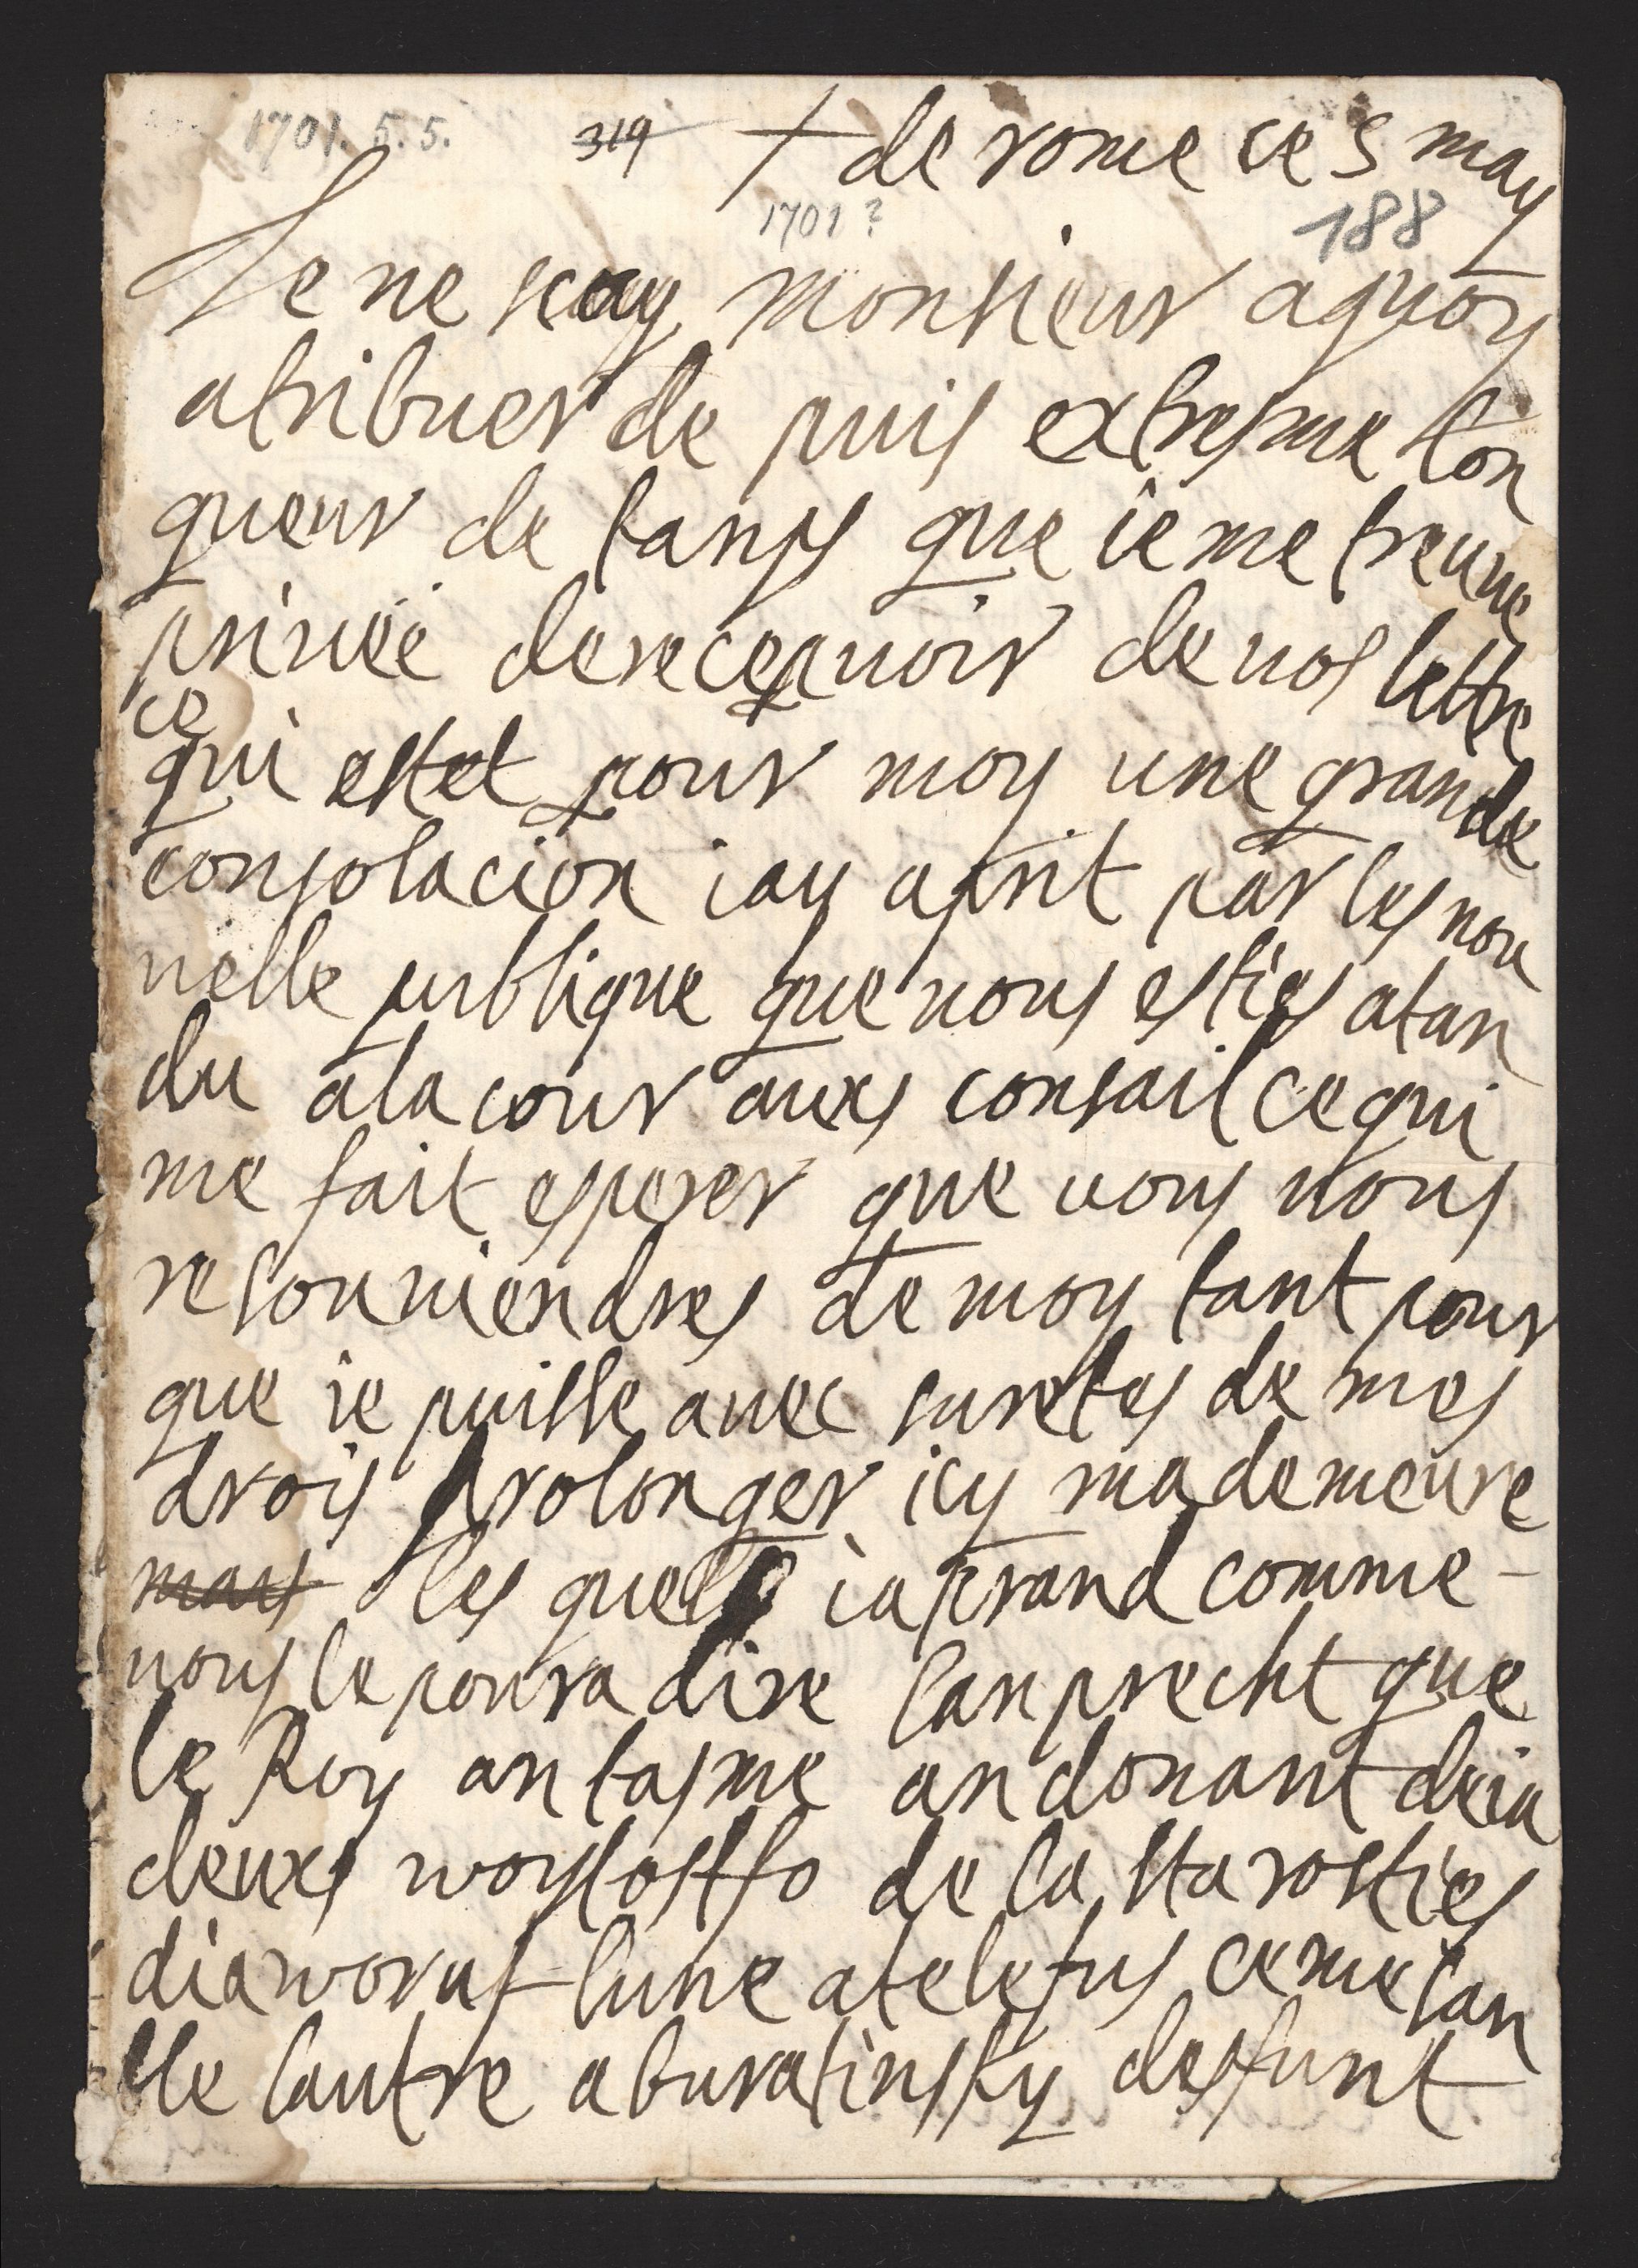 1701. 5. 5. 319 de rome ce 5 may
1701 ? 188
Je ne scay monsieur aquoy
atribuer de puis extresme lon
gueur de tanps que ie me treuue
priuée derecepuoir de uos lettre
ce
qui estet pour moy une grande
consolacion iay aprit par les nou
uelle publique que uous esties atan
du ala cour auxs consail ce qui
me fait esperer que vous uous
resouuiendres de moy tant pour
que ie puisse auec suretes de mes
drois prolonger icy ma demeure
mays les quels iaprand comme
uous le poura dire lanprecht que
le Roy antasme andonant deia
deuxs woytostfo de la starosties
diaworuf lune atelefus ce me san
ble lautre aburatinsky desfunt